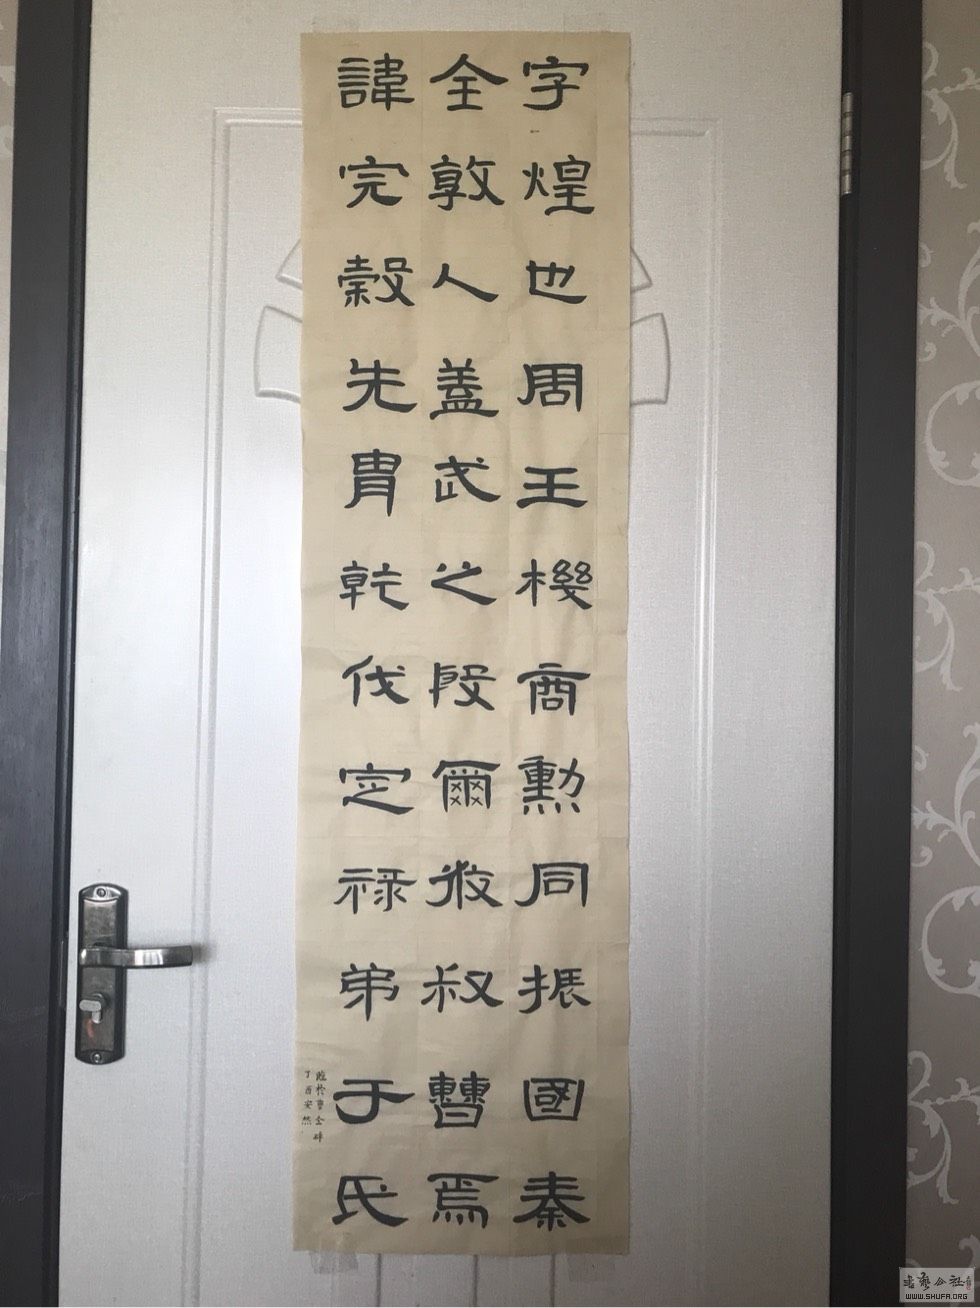 字煌也周王機商勳同振國秦
全敦人蓋武之殷爾攸叔曹焉
諱完穀先胄乾伐定祿弟于氏
臨於曹全碑
丁酉安然
书艺公社
WWW.SHUFA.ORG